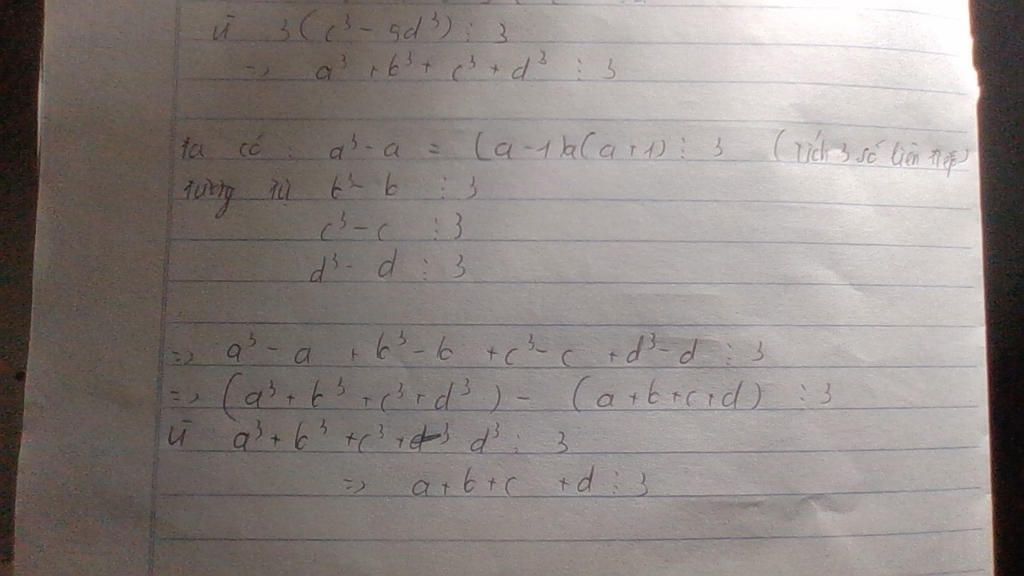 vì 3(c³ - 5d³) ⋮ 3
=> a³ + b³ + c³ + d³ ⋮ 3
ta có : a³ - a = (a - 1)a(a + 1) ⋮ 3 (tích 3 số liên tiếp)
tương tự b³ - b ⋮ 3
c³ - c ⋮ 3
d³ - d ⋮ 3
=> a³ - a + b³ - b + c³ - c + d³ - d ⋮ 3
=> (a³ + b³ + c³ + d³) - (a + b + c + d) ⋮ 3
vì a³ + b³ + c³ + d³ ⋮ 3
=> a + b + c + d ⋮ 3